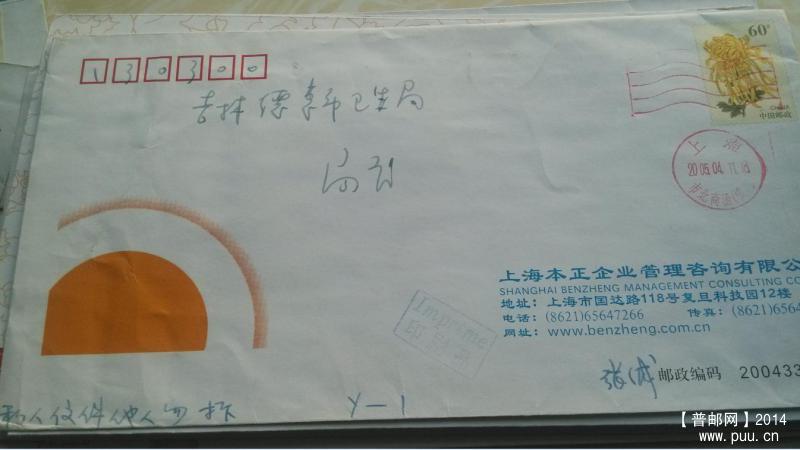 130300
60分
CHINA
中国邮政
吉林德惠市卫生局
上海
2005.04.11.18
上海本正企业管理咨询有限公
SHANGHAI BENZHENG MANAGEMENT CONSULTING CO
地址：上海市国达路118号复旦科技园12楼
电话：(8621)65647266 传真：(8621)6564
网址：www.benzheng.com.cn
Imprimé
印
邮政编码 200433
私人文件他人勿拆
Y-1
【普邮网】2014
www.puu.cn